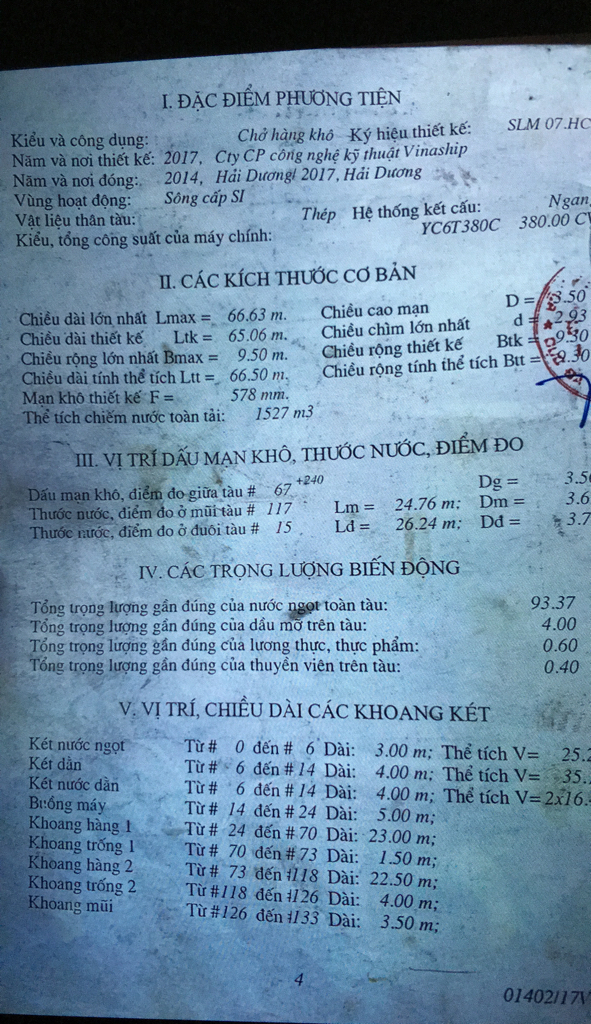 I. ĐẶC ĐIỂM PHƯƠNG TIỆN
Kiểu và công dụng: Chở hàng khô Ký hiệu thiết kế: SLM 07.HC
Năm và nơi thiết kế: 2017, Cty CP công nghệ kỹ thuật Vinaship
Năm và nơi đóng: 2014, Hải Dương/ 2017, Hải Dương
Vùng hoạt động: Sông cấp SI
Vật liệu thân tàu: Thép Hệ thống kết cấu: Ngang
Kiểu, tổng công suất của máy chính: YC6T380C 380.00 CV
II. CÁC KÍCH THƯỚC CƠ BẢN
Chiều dài lớn nhất Lmax = 66.63 m. Chiều cao mạn D = 3.50
Chiều dài thiết kế Ltk = 65.06 m. Chiều chìm lớn nhất d = 2.93
Chiều rộng lớn nhất Bmax = 9.50 m. Chiều rộng thiết kế Btk = 9.30
Chiều dài tính thể tích Ltt = 66.50 m. Chiều rộng tính thể tích Btt = 9.30
Mạn khô thiết kế F = 578 mm.
Thể tích chiếm nước toàn tải: 1527 m3
III. VỊ TRÍ DẤU MẠN KHÔ, THƯỚC NƯỚC, ĐIỂM ĐO
Dấu mạn khô, điểm đo giữa tàu # 67 +240 Dg = 3.50
Thước nước, điểm đo ở mũi tàu # 117 Lm = 24.76 m; Dm = 3.6
Thước nước, điểm đo ở đuôi tàu # 15 Lđ = 26.24 m; Dđ = 3.7
IV. CÁC TRỌNG LƯỢNG BIẾN ĐỘNG
Tổng trọng lượng gần đúng của nước ngọt toàn tàu: 93.37
Tổng trọng lượng gần đúng của dầu mỡ trên tàu: 4.00
Tổng trọng lượng gần đúng của lương thực, thực phẩm: 0.60
Tổng trọng lượng gần đúng của thuyền viên trên tàu: 0.40
V. VỊ TRÍ, CHIỀU DÀI CÁC KHOANG KÉT
Két nước ngọt Từ # 0 đến # 6 Dài: 3.00 m; Thể tích V= 25.2
Két dằn Từ # 6 đến # 14 Dài: 4.00 m; Thể tích V= 35.
Két nước dằn Từ # 6 đến # 14 Dài: 4.00 m; Thể tích V= 2x16.
Buồng máy Từ # 14 đến # 24 Dài: 5.00 m;
Khoang hàng 1 Từ # 24 đến # 70 Dài: 23.00 m;
Khoang trống 1 Từ # 70 đến # 73 Dài: 1.50 m;
Khoang hàng 2 Từ # 73 đến #118 Dài: 22.50 m;
Khoang trống 2 Từ #118 đến #126 Dài: 4.00 m;
Khoang mũi Từ #126 đến #133 Dài: 3.50 m;
4
01402/17V